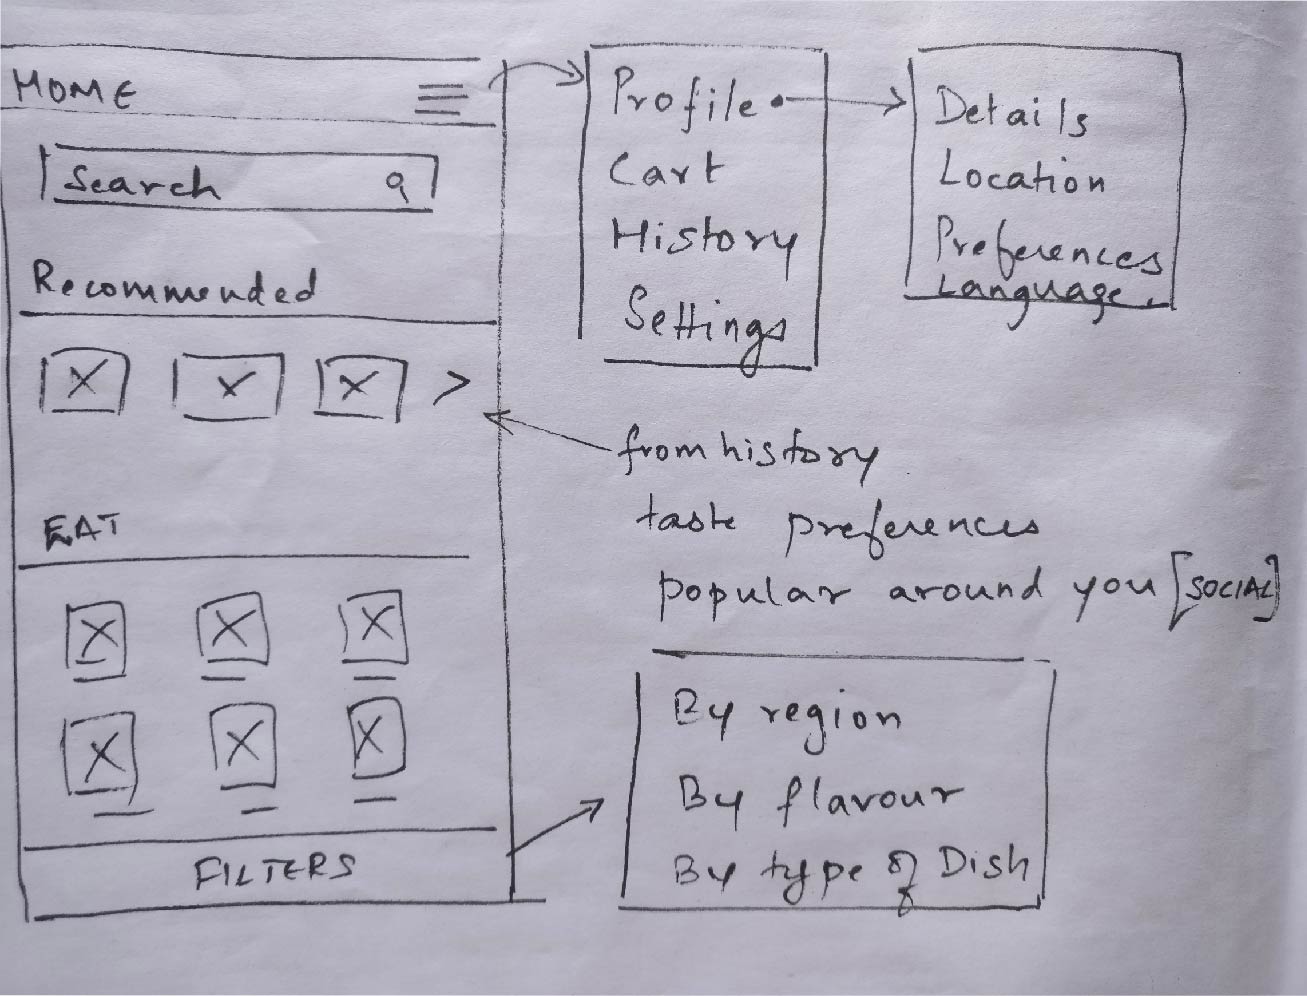 HOME
Search
Recommended
EAT
FILTERS
Profile
Cart
History
Settings
Details
Location
Preferences
Language
from history
taste preferences
popular around you [SOCIAL]
By region
By flavour
By type of Dish